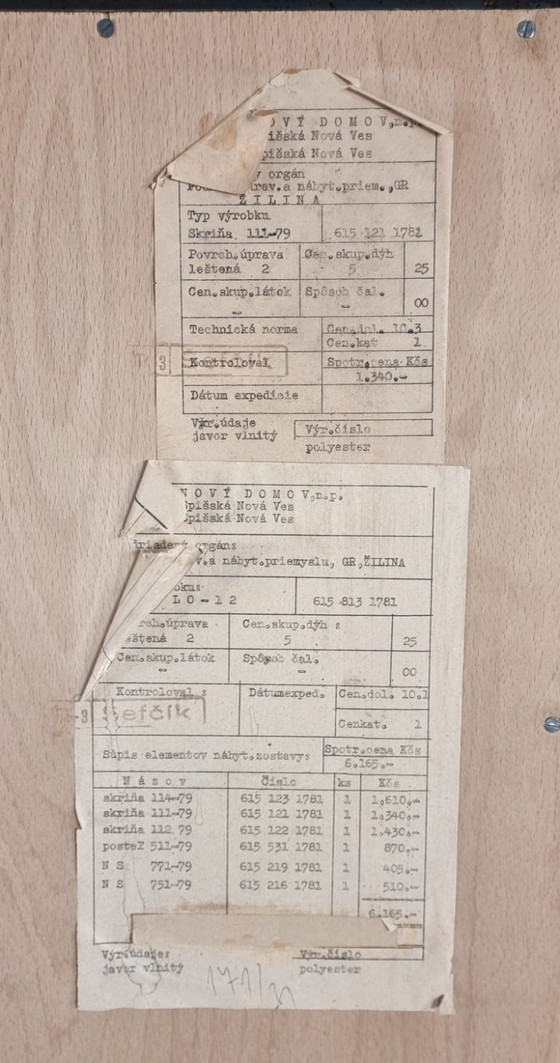 OVÝ DOMOV,n.p.
išská Nová Ves
pišská Nová Ves
orgán
rev.a nábyt.priem.,GR
ŽILINA
Typ výrobku
Skriňa 111-79 615 121 1781
Povrch.úprava Cen.skup.dýh
leštená 2 5 25
Cen.skup.látok Spôsob čal.
- 00
Technická norma Cen.dol. 10.3
Cen.kat 1
3 Kontroloval Spotr.cena Kčs
1.340.-
Dátum expedície
Výr.údaje Výr.číslo
javor vlnitý polyester
NOVÝ DOMOV,n.p.
Spišská Nová Ves
Spišská Nová Ves
riadený orgán:
v.a nábyt.priemyslu, GR,ŽILINA
obku:
LO-12 615 813 1781
rch.úprava Cen.skup.dýh :
eštená 2 5 25
Cen.skup.látok Spôsob čal.
- - 00
Kontroloval : Dátumexped. Cen.dol. 10.1
-3 Šefčík
Cenkat. 1
Súpis elementov nábyt.zostavy: Spotr.cena Kčs
6.165.-
Názov Číslo ks Kčs
skriňa 114-79 615 123 1781 1 1,610.-
skriňa 111-79 615 121 1781 1 1,340.-
skriňa 112 79 615 122 1781 1 1,430.-
posteľ 511-79 615 531 1781 1 870.-
N S 771-79 615 219 1781 1 405.-
N S 751-79 615 216 1781 1 510.-
6.165.-
Výr.údaje: Výr.číslo
javor vlnitý polyester